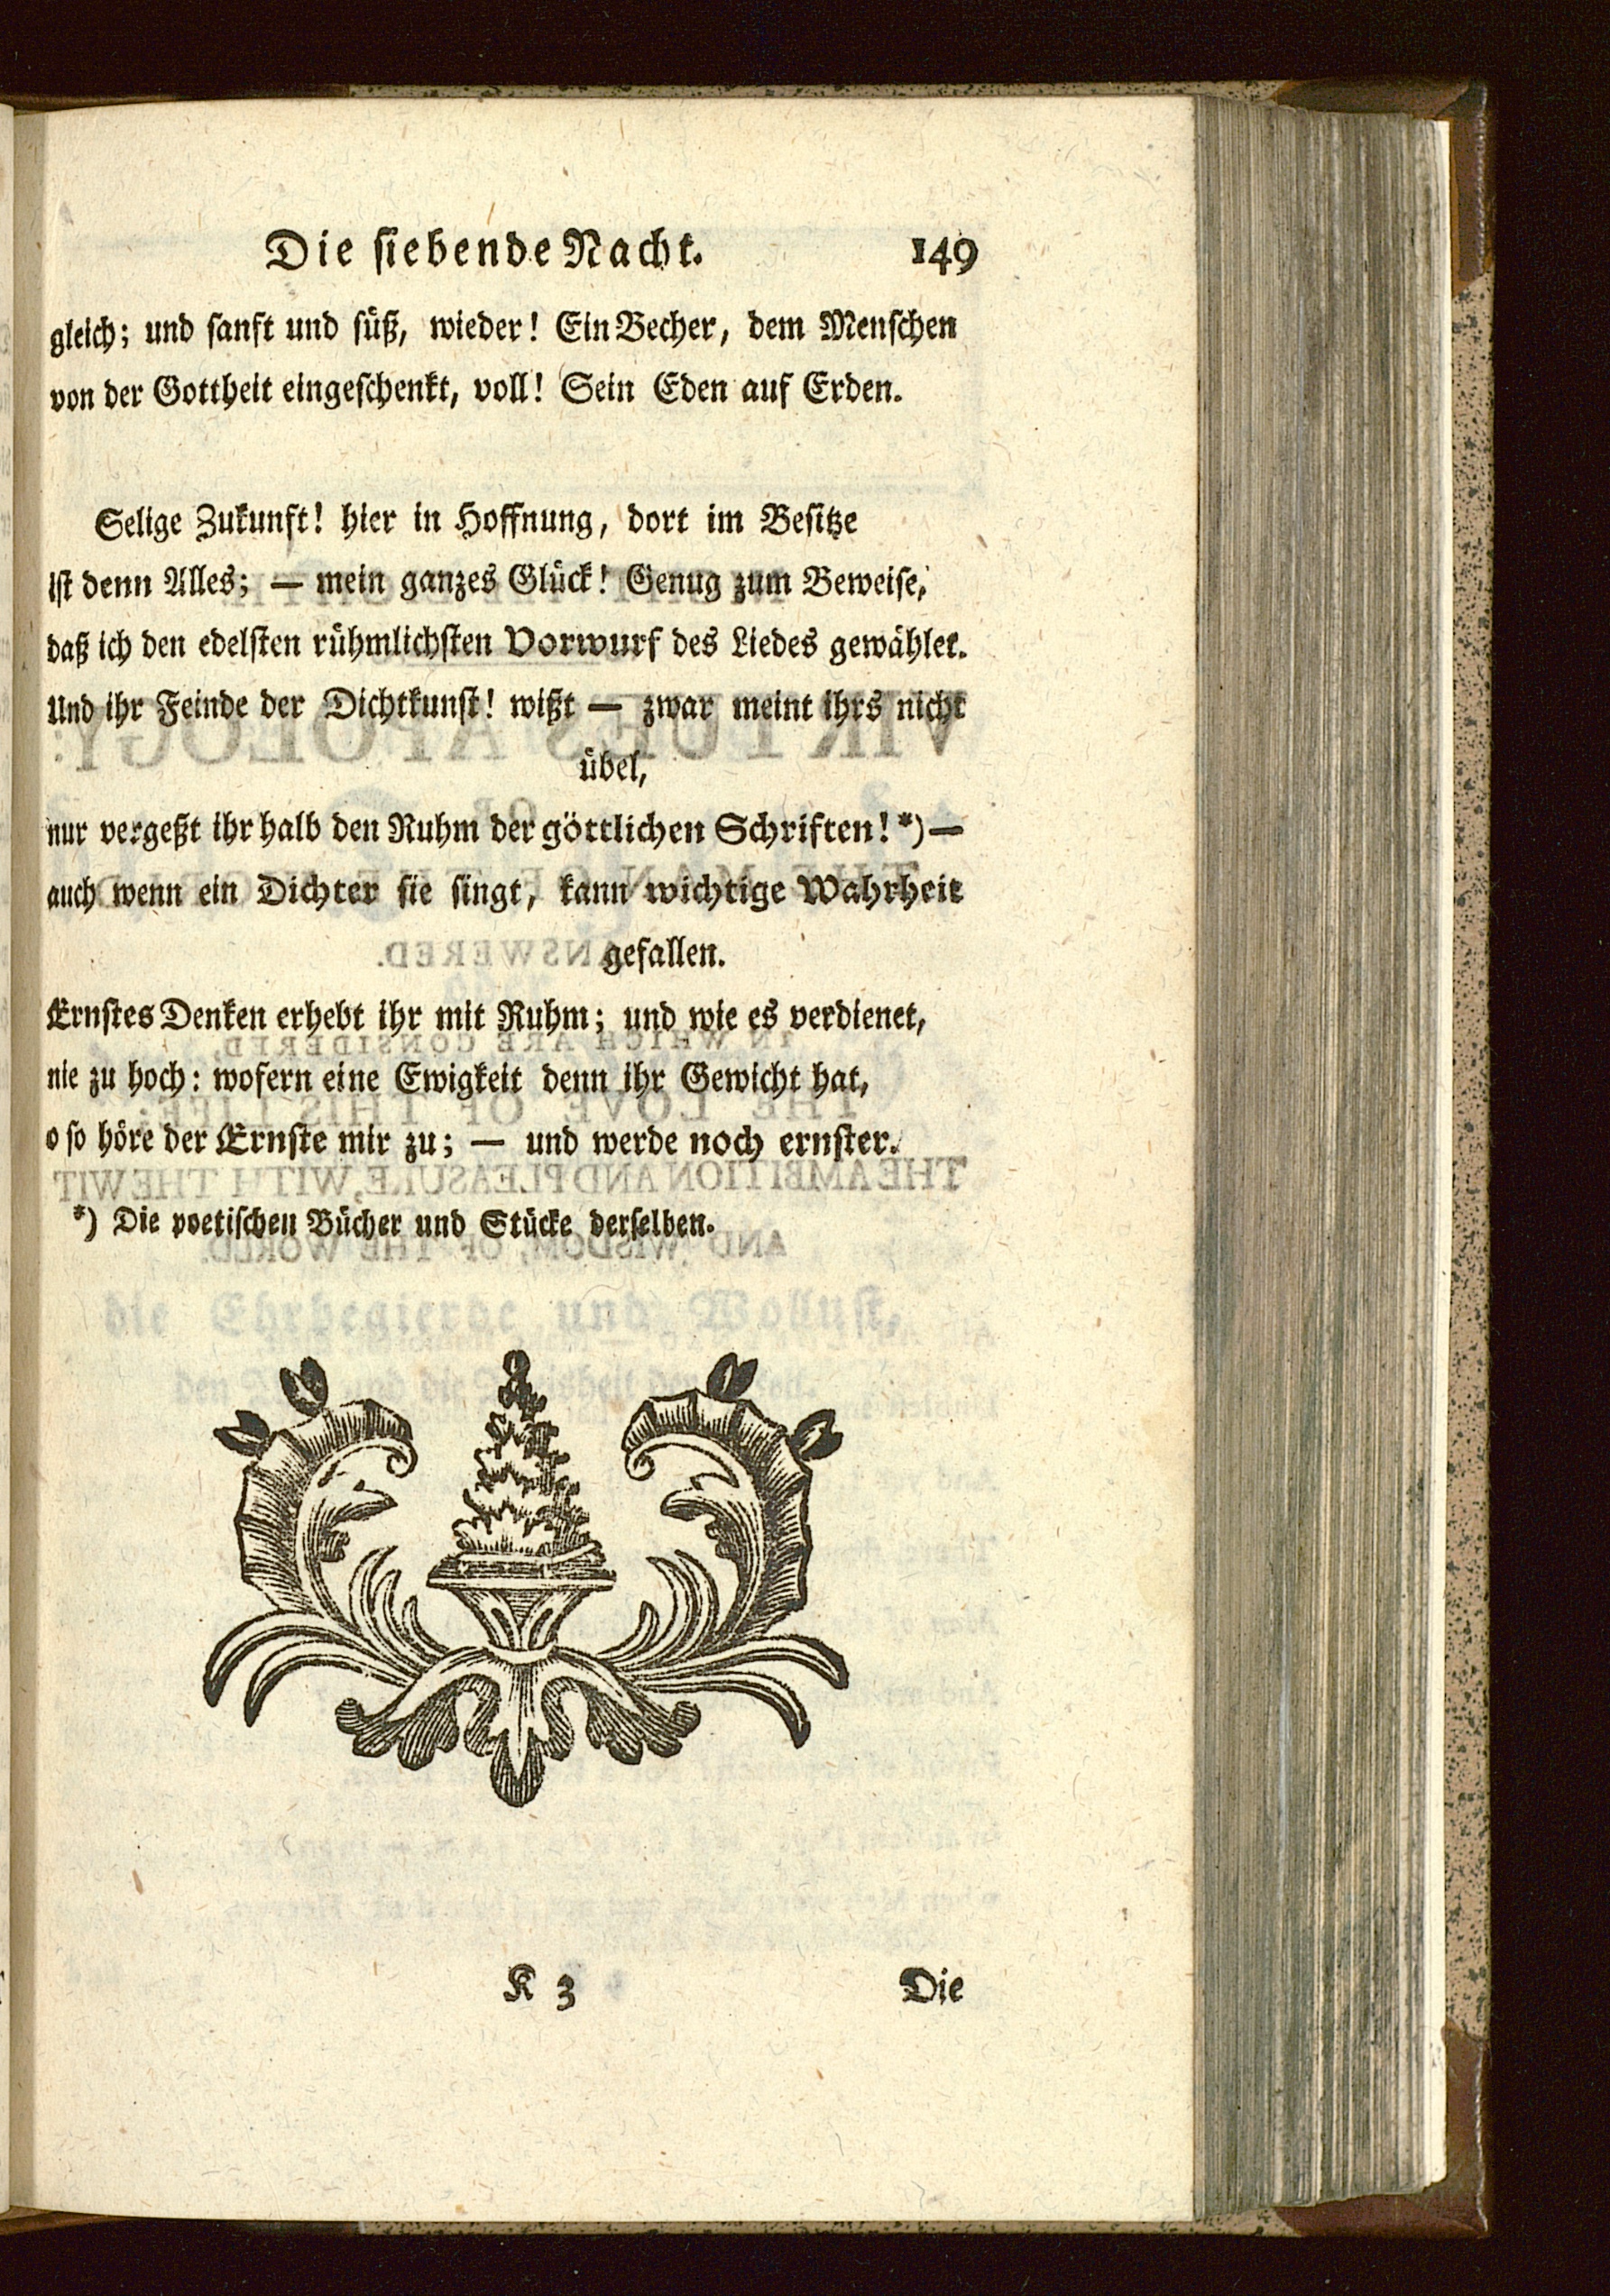 Die siebende Nacht. 149
gleich; und sanft und süß, wieder! Ein Becher, dem Menschen
von der Gottheit eingeschenkt, voll! Sein Eden auf Erden.
Selige Zukunft! hier in Hoffnung, dort im Besitze
ist denn Alles; — mein ganzes Glück! Genug zum Beweise,
daß ich den edelsten rühmlichsten Vorwurf des Liedes gewählet.
Und ihr Feinde der Dichtkunst! wißt — zwar meint ihrs nicht
übel,
nur vergeßt ihr halb den Ruhm der göttlichen Schriften! *) —
auch wenn ein Dichter sie singt, kann wichtige Wahrheit
gefallen.
Ernstes Denken erhebt ihr mit Ruhm; und wie es verdienet,
nie zu hoch: wofern eine Ewigkeit denn ihr Gewicht hat,
o so höre der Ernste mir zu; — und werde noch ernster.
*) Die poetischen Bücher und Stücke derselben.
K 3 Die